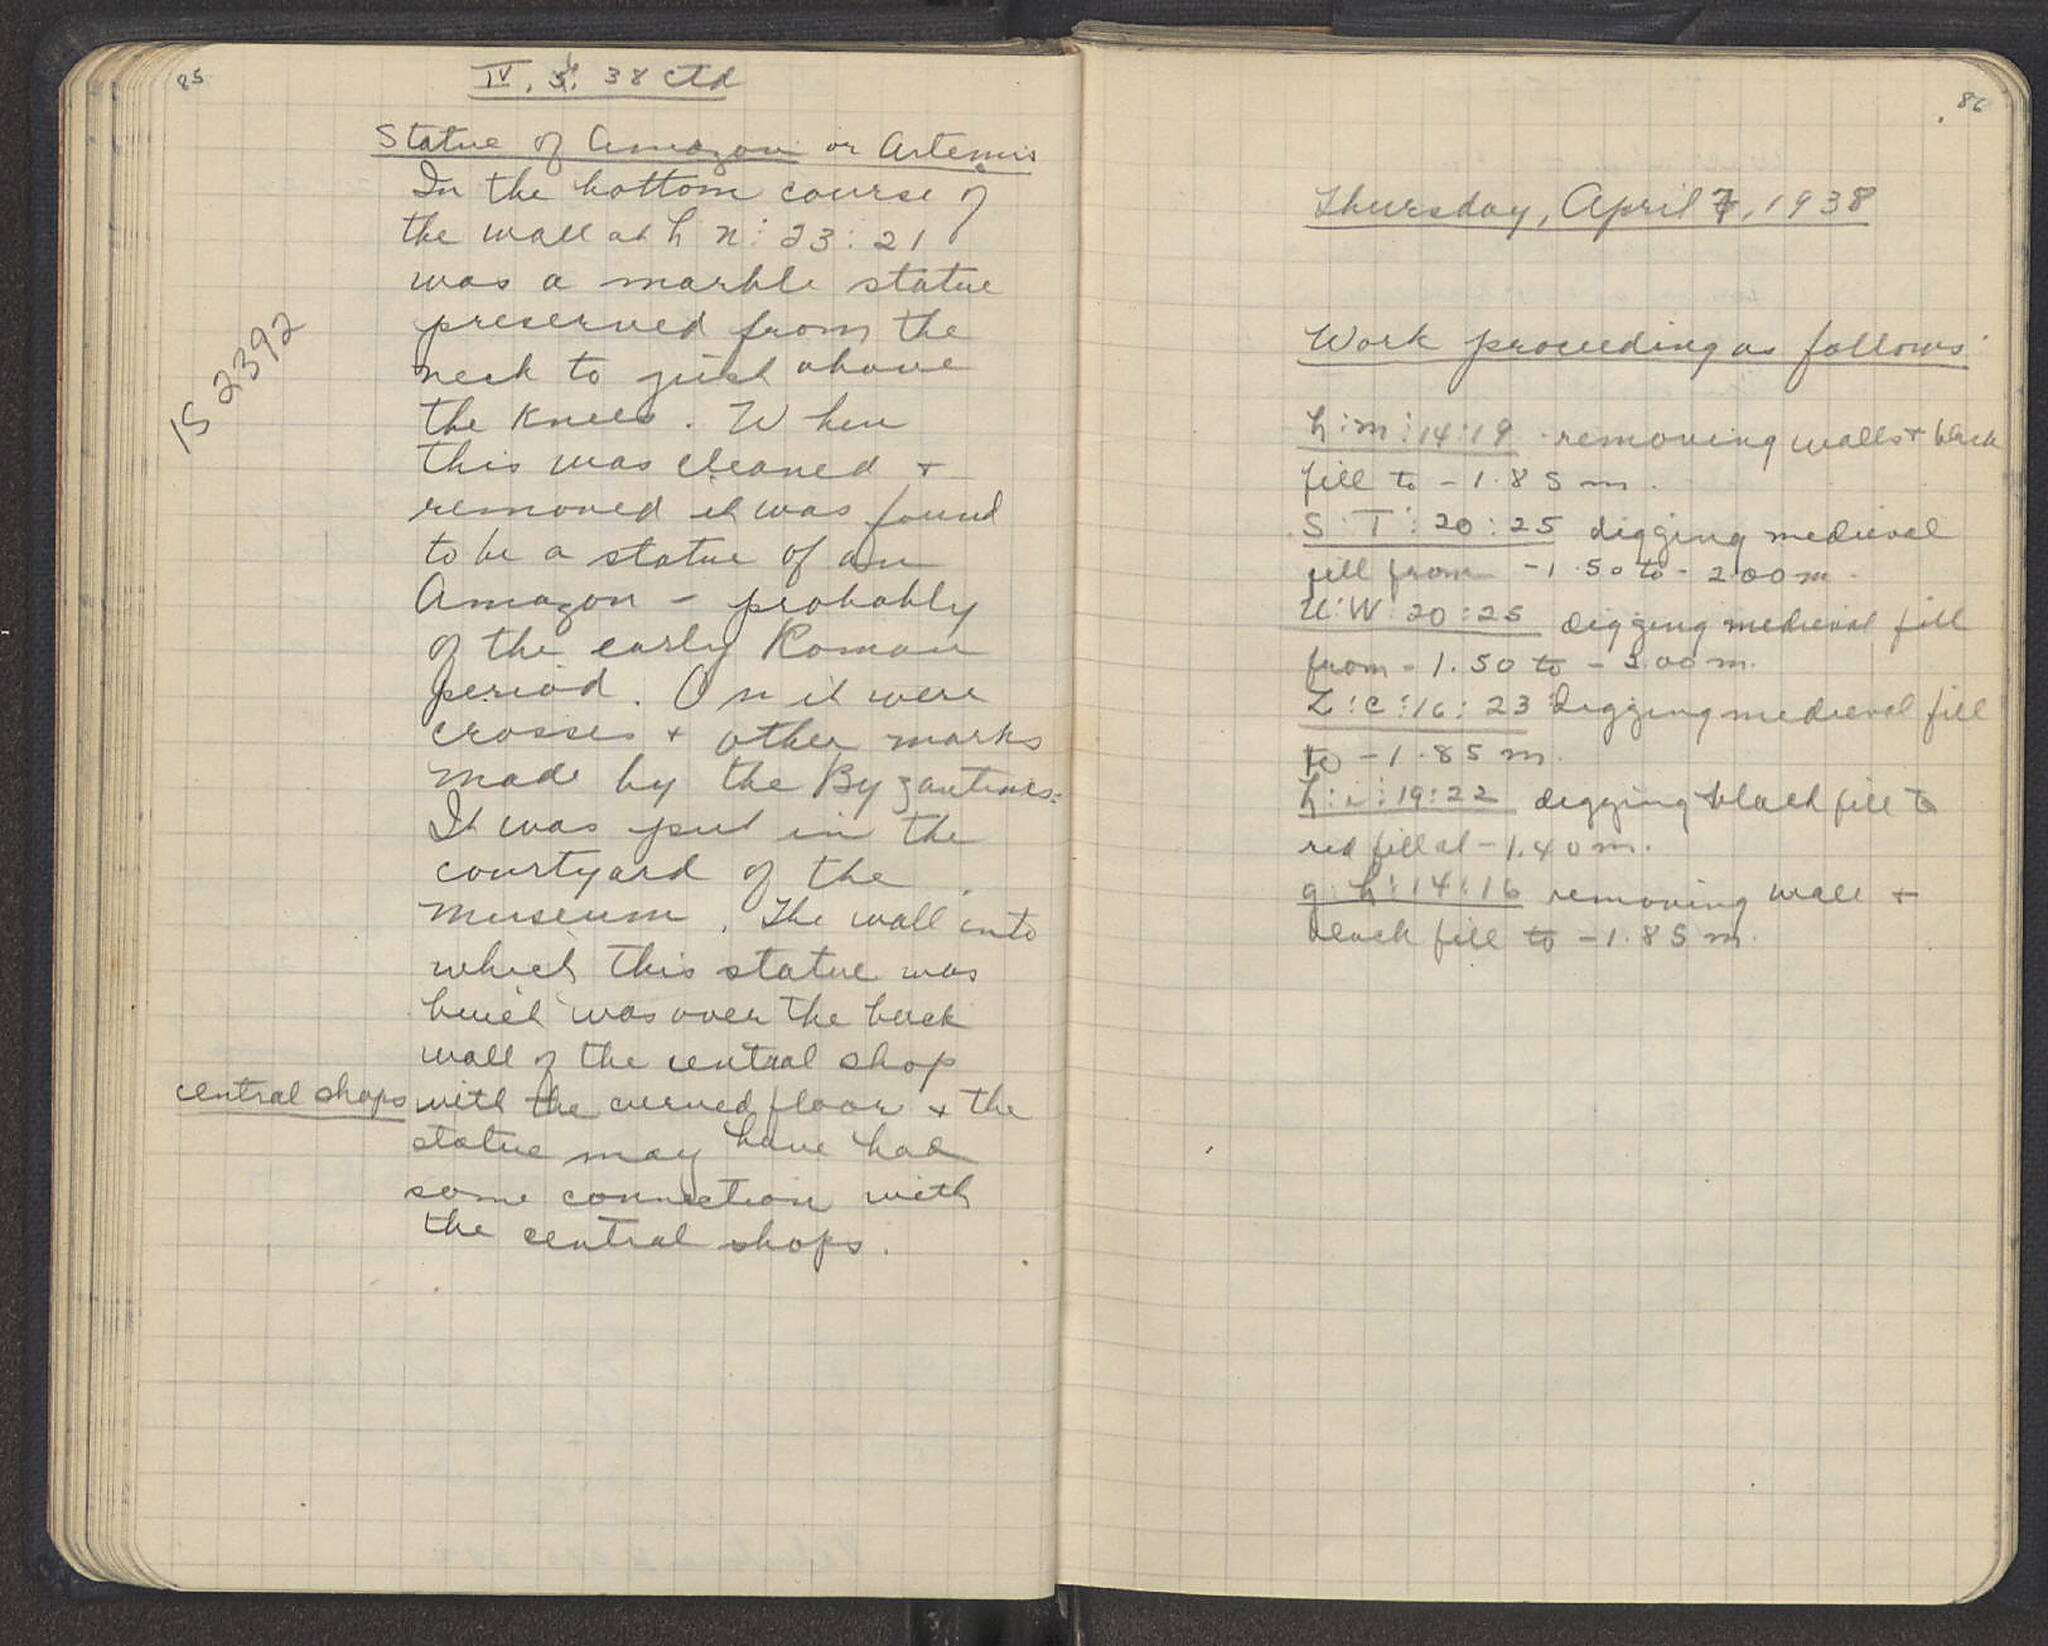 85
IV, 5, 38 ctd
Statue of Amazon or Artemis
In the bottom course of
the wall at h n: 23: 21
was a marble statue
preserved from the
neck to just above
the knees. When
this was cleaned +
removed it was found
to be a statue of an
Amazon - probably
of the early Roman
period. On it were
crosses + other marks
made by the Byzantines.
It was put in the
courtyard of the
museum. The wall into
which this statue was
built was over the back
wall of the central shop
with the curved floor + the
statue may have had
some connection with
the central shops.
1S 2392
central shops
86
Thursday, April 7, 1938
Work proceeding as follows
h:m:14:19 removing walls + black
fill to -1.85 m.
S:T:20:25 digging medieval
fill from -1.50 to -2.00 m.
U:W:20:25 digging medieval fill
from -1.50 to - 3.00 m.
Z:C:16:23 digging medieval fill
to -1.85 m.
h:i:19:22 digging black fill to
red fill at -1.40 m.
g:h:14:16 removing wall +
black fill to -1.85 m.